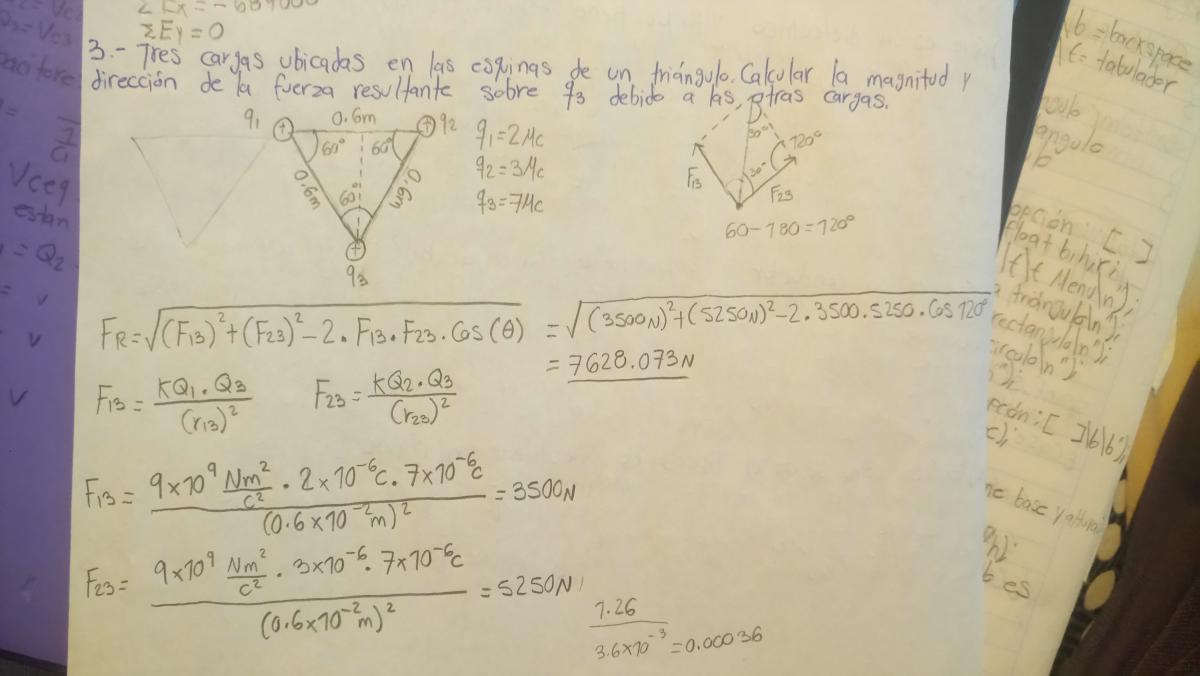 ΣEx = -684000
ΣEy = 0
3.- Tres cargas ubicadas en las esquinas de un triángulo. Calcular la magnitud y
dirección de la fuerza resultante sobre q3 debido a las otras cargas.
q1 0.6m q2
60° 60°
0.6m 0.6m
60°
q3
q1=2Mc
q2=3Mc
q3=7Mc
30° 120°
30°
F13 F23
60-180=120°
FR=√(F13)²+(F23)²-2.F13.F23.Cos(θ) =√(3500N)²+(5250N)²-2.3500.5250.Cos120°
=7628.073N
F13 = KQ1.Q3/(r13)² F23 = KQ2.Q3/(r23)²
F13 = 9x10⁹ Nm²/c² . 2x10⁻⁶c . 7x10⁻⁶c / (0.6x10⁻²m)² = 3500N
F23 = 9x10⁹ Nm²/c² . 3x10⁻⁶ . 7x10⁻⁶c / (0.6x10⁻²m)² = 5250N
1.26/3.6x10⁻³ = 0.00036
Vceq
estan
= Q2
b = backspace
t = tabulador
opción [ ]
float b,h,r;
\t)t Menu\n");
triángulo\n");
rectangulo\n");
circulo\n");
pción:[ ]\b\b");
base y altura
es